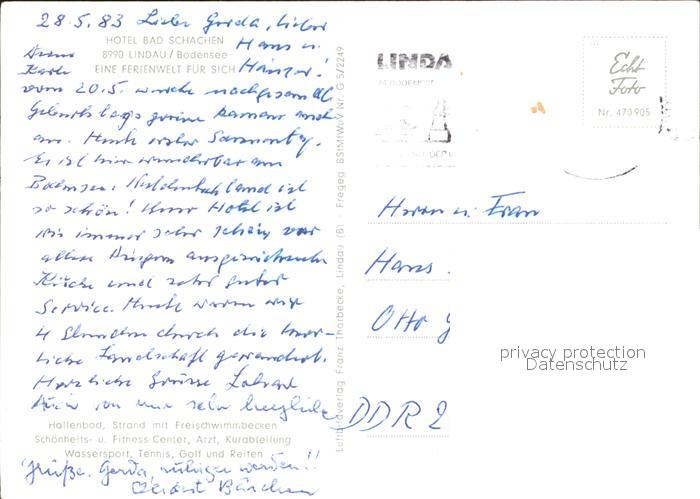 28.5.83 Liebe Gerda, lieber
Hans u.
HOTEL BAD SCHACHEN
8990 LINDAU / Bodensee
EINE FERIENWELT FÜR SICH
Karte
vom 20.5. wurde nachgesandt.
an. Heute erster Sonnentag.
Es ist hier wunderbar am
Bodensee. Süddeutschland ist
so schön! Unser Hotel ist
wie immer sehr schön, vor
allen Dingen ausgezeichnete
Küche und sehr guter
Service. Heute waren wir
4 Stunden durch die herr-
liche Landschaft gewandert.
Herzliche Grüsse
Auch von mir sehr herzliche
Hallenbad, Strand mit Freischwimmbecken
Schönheits- u. Fitness-Center, Arzt, Kurabteilung
Wassersport, Tennis, Golf und Reiten
Grüße. Gerda, ruhiger werden!!
Luftbildverlag Franz Thorbecke, Lindau (B) - Freigeg. BSTMfWuV Nr. G 5/2249
LINDA
Echt
Foto
Nr. 470 905
Herrn u. Frau
Hans
Otto
DDR 2
privacy protection
Datenschutz